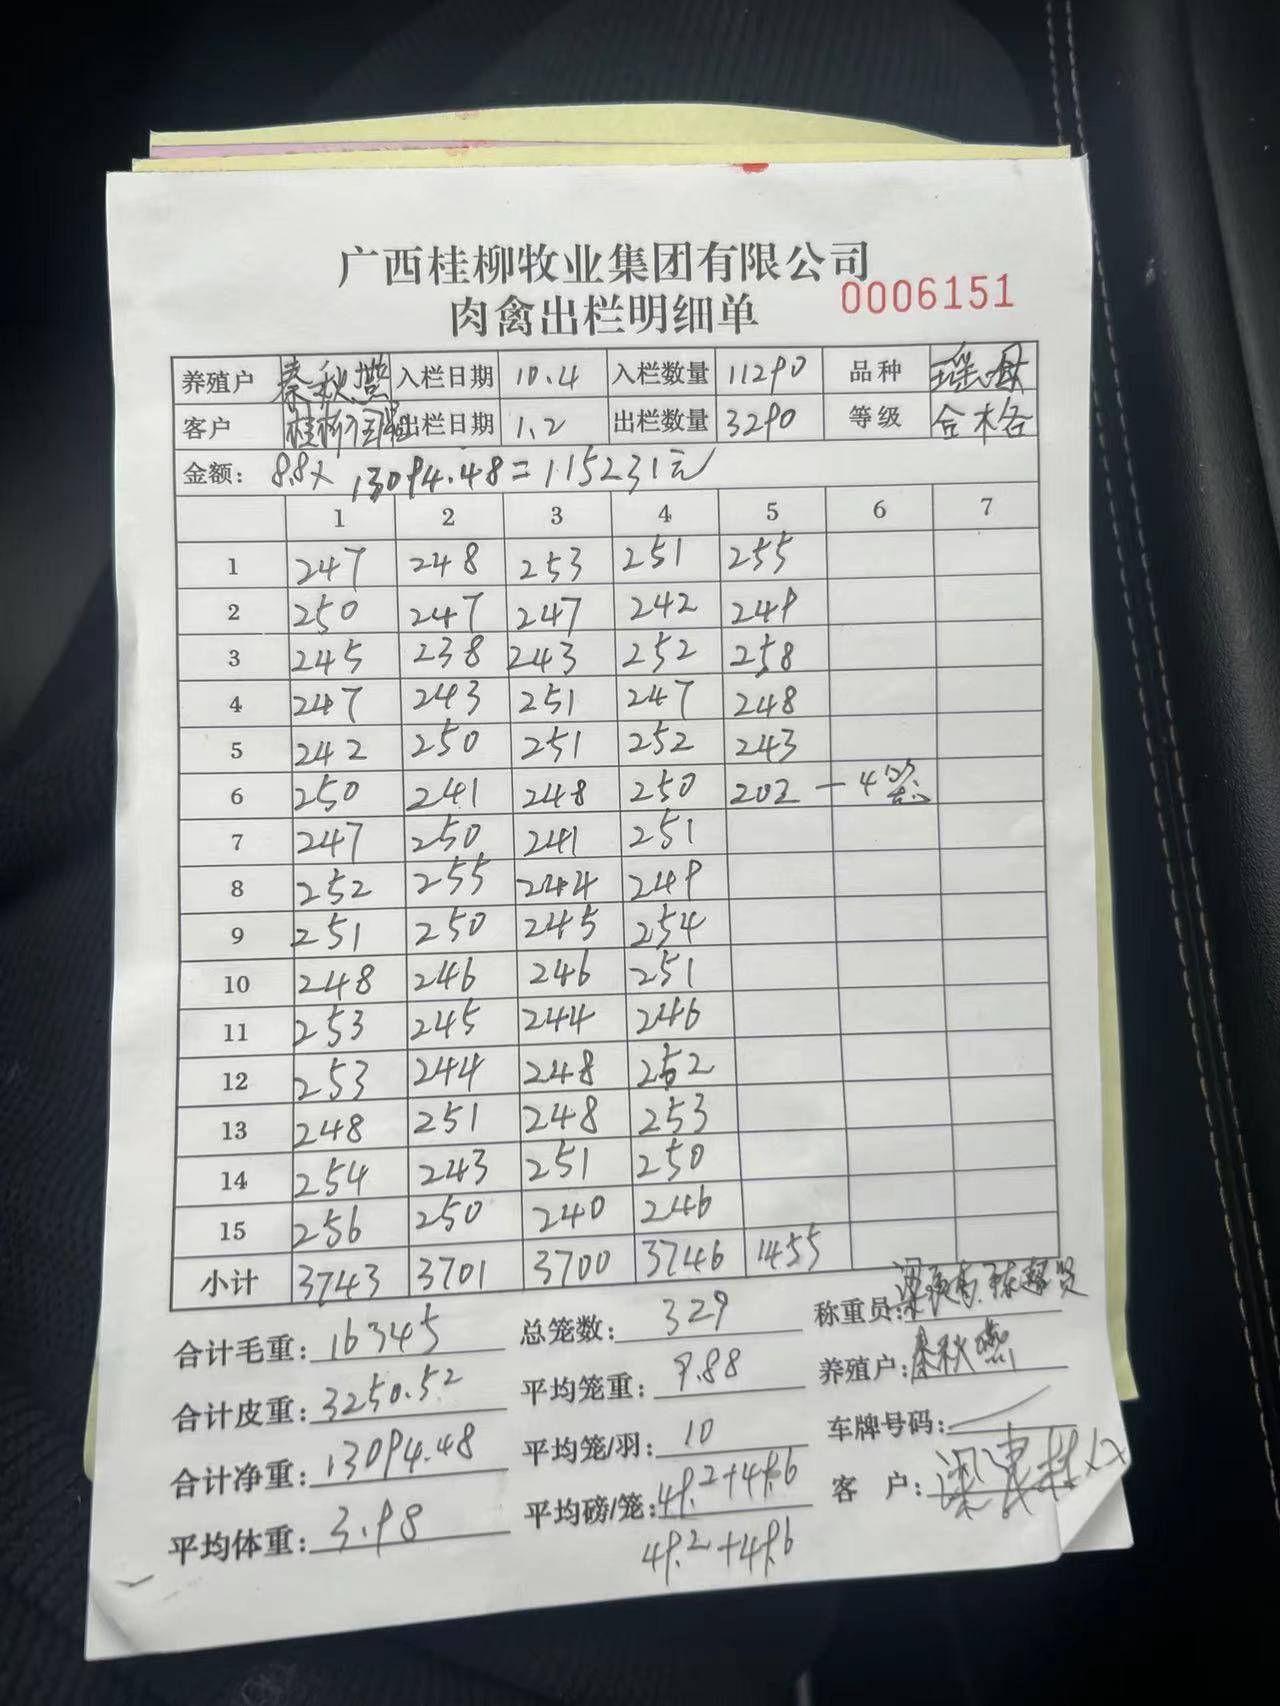 广西桂柳牧业集团有限公司
肉禽出栏明细单 0006151
养殖户 秦秋燕 入栏日期 10.4 入栏数量 11290 品种 瑶母
客户 桂柳 出栏日期 1.2 出栏数量 3290 等级 合格
金额: 8.8× 13094.48=115231元
1 2 3 4 5 6 7
1 247 248 253 251 255
2 250 247 247 242 249
3 245 238 243 252 258
4 247 243 251 247 248
5 242 250 251 252 243
6 250 241 248 250 202 —4笼
7 247 250 241 251
8 252 255 244 249
9 251 250 245 254
10 248 246 246 251
11 253 245 244 246
12 253 244 248 252
13 248 251 248 253
14 254 243 251 250
15 256 250 240 246
小计 3743 3701 3700 3746 1455
合计毛重: 16345 总笼数: 329 称重员:
合计皮重: 3250.52 平均笼重: 9.88 养殖户: 秦秋燕
合计净重: 13094.48 平均笼/羽: 10 车牌号码:
平均体重: 3.98 平均磅/笼: 49.2+49.6 客 户:
49.2+49.6